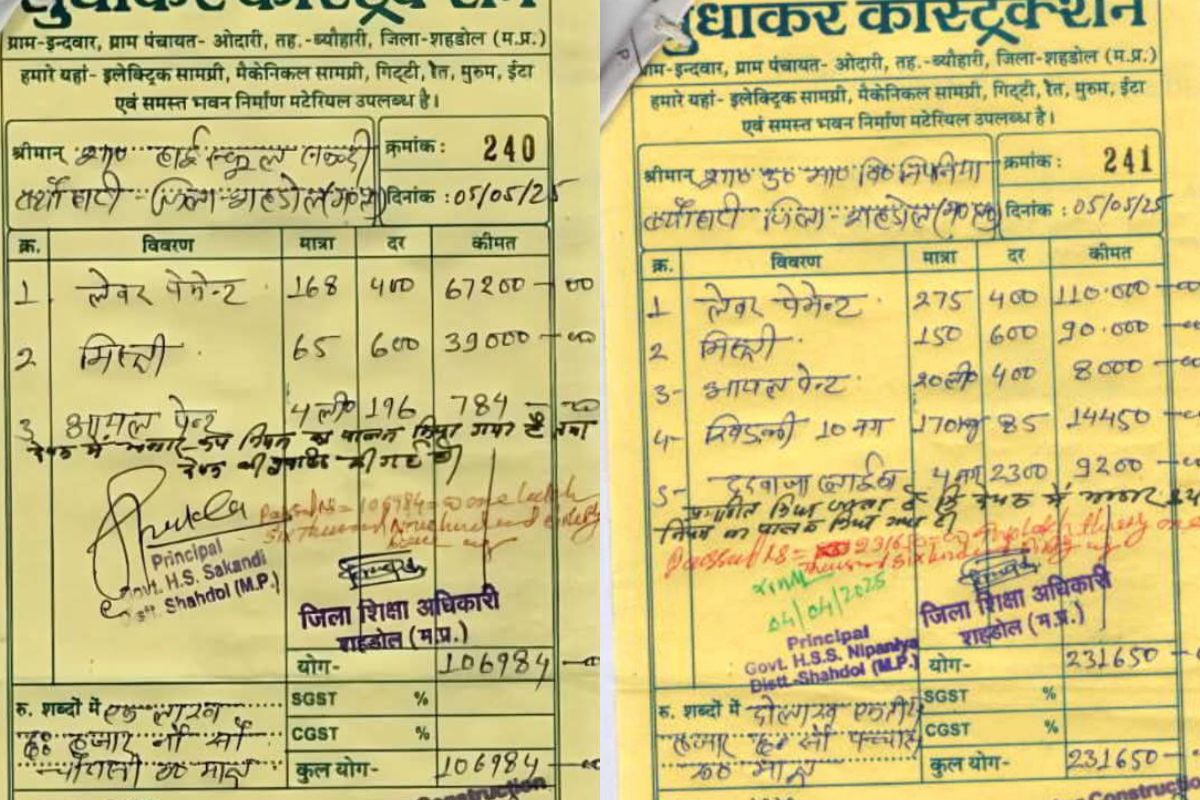 सुधाकर कांस्ट्रक्शन
ग्राम-इन्दवार, ग्राम पंचायत- ओदारी, तह.-ब्यौहारी, जिला-शहडोल (म.प्र.)
हमारे यहां- इलेक्ट्रिक सामग्री, मैकेनिकल सामग्री, गिट्टी, रेत, मुरुम, ईटा
एवं समस्त भवन निर्माण मटेरियल उपलब्ध है।
श्रीमान् शा० हाई स्कूल सकन्दी
क्रमांक : 240
ब्यौहारी - जिला - शहडोल (म०प्र०)
दिनांक : 05/05/25
क्र. विवरण मात्रा दर कीमत
1 लेबर पेमेन्ट 168 400 67200 - 00
2 मिस्त्री 65 600 39000 - 00
3 आयल पेन्ट 4 ली० 196 784 - 00
Passed Rs = 106984 = 00 one lakh
Six thousand Nine hundred eighty
Principal
Govt. H.S. Sakandi
Distt. Shahdol (M.P.)
जिला शिक्षा अधिकारी
शहडोल (म.प्र.)
योग- 106984 - 00
SGST %
CGST %
रु. शब्दों में एक लाख
छः हजार नौ सौ
चौरासी रु० मात्र
कुल योग- 106984 - 00
Construction
सुधाकर कांस्ट्रक्शन
ग्राम-इन्दवार, ग्राम पंचायत- ओदारी, तह.-ब्यौहारी, जिला-शहडोल (म.प्र.)
हमारे यहां- इलेक्ट्रिक सामग्री, मैकेनिकल सामग्री, गिट्टी, रेत, मुरुम, ईटा
एवं समस्त भवन निर्माण मटेरियल उपलब्ध है।
श्रीमान् शा० उ० मा० वि० निपनिया
क्रमांक : 241
ब्यौहारी जिला - शहडोल (म०प्र०)
दिनांक : 05/05/25
क्र. विवरण मात्रा दर कीमत
1 लेबर पेमेन्ट 275 400 110.000 - 00
2 मिस्त्री 150 600 90.000 - 00
3- आयल पेन्ट 20ली० 400 8000 - 00
4- खिड़की 10 नग 170kg 85 14450 - 00
5- दरवाजा 4 नग 2300 9200 - 00
Passed Rs = 231650 = 00
04/04/2025
Principal
Govt. H.S.S. Nipaniya
Distt.-Shahdol (M.P.)
जिला शिक्षा अधिकारी
शहडोल (म.प्र.)
योग- 231650 - 00
SGST %
CGST %
रु. शब्दों में दो लाख एकतीस
हजार छः सौ पच्चास
रु० मात्र
कुल योग- 231650 - 00
Construction